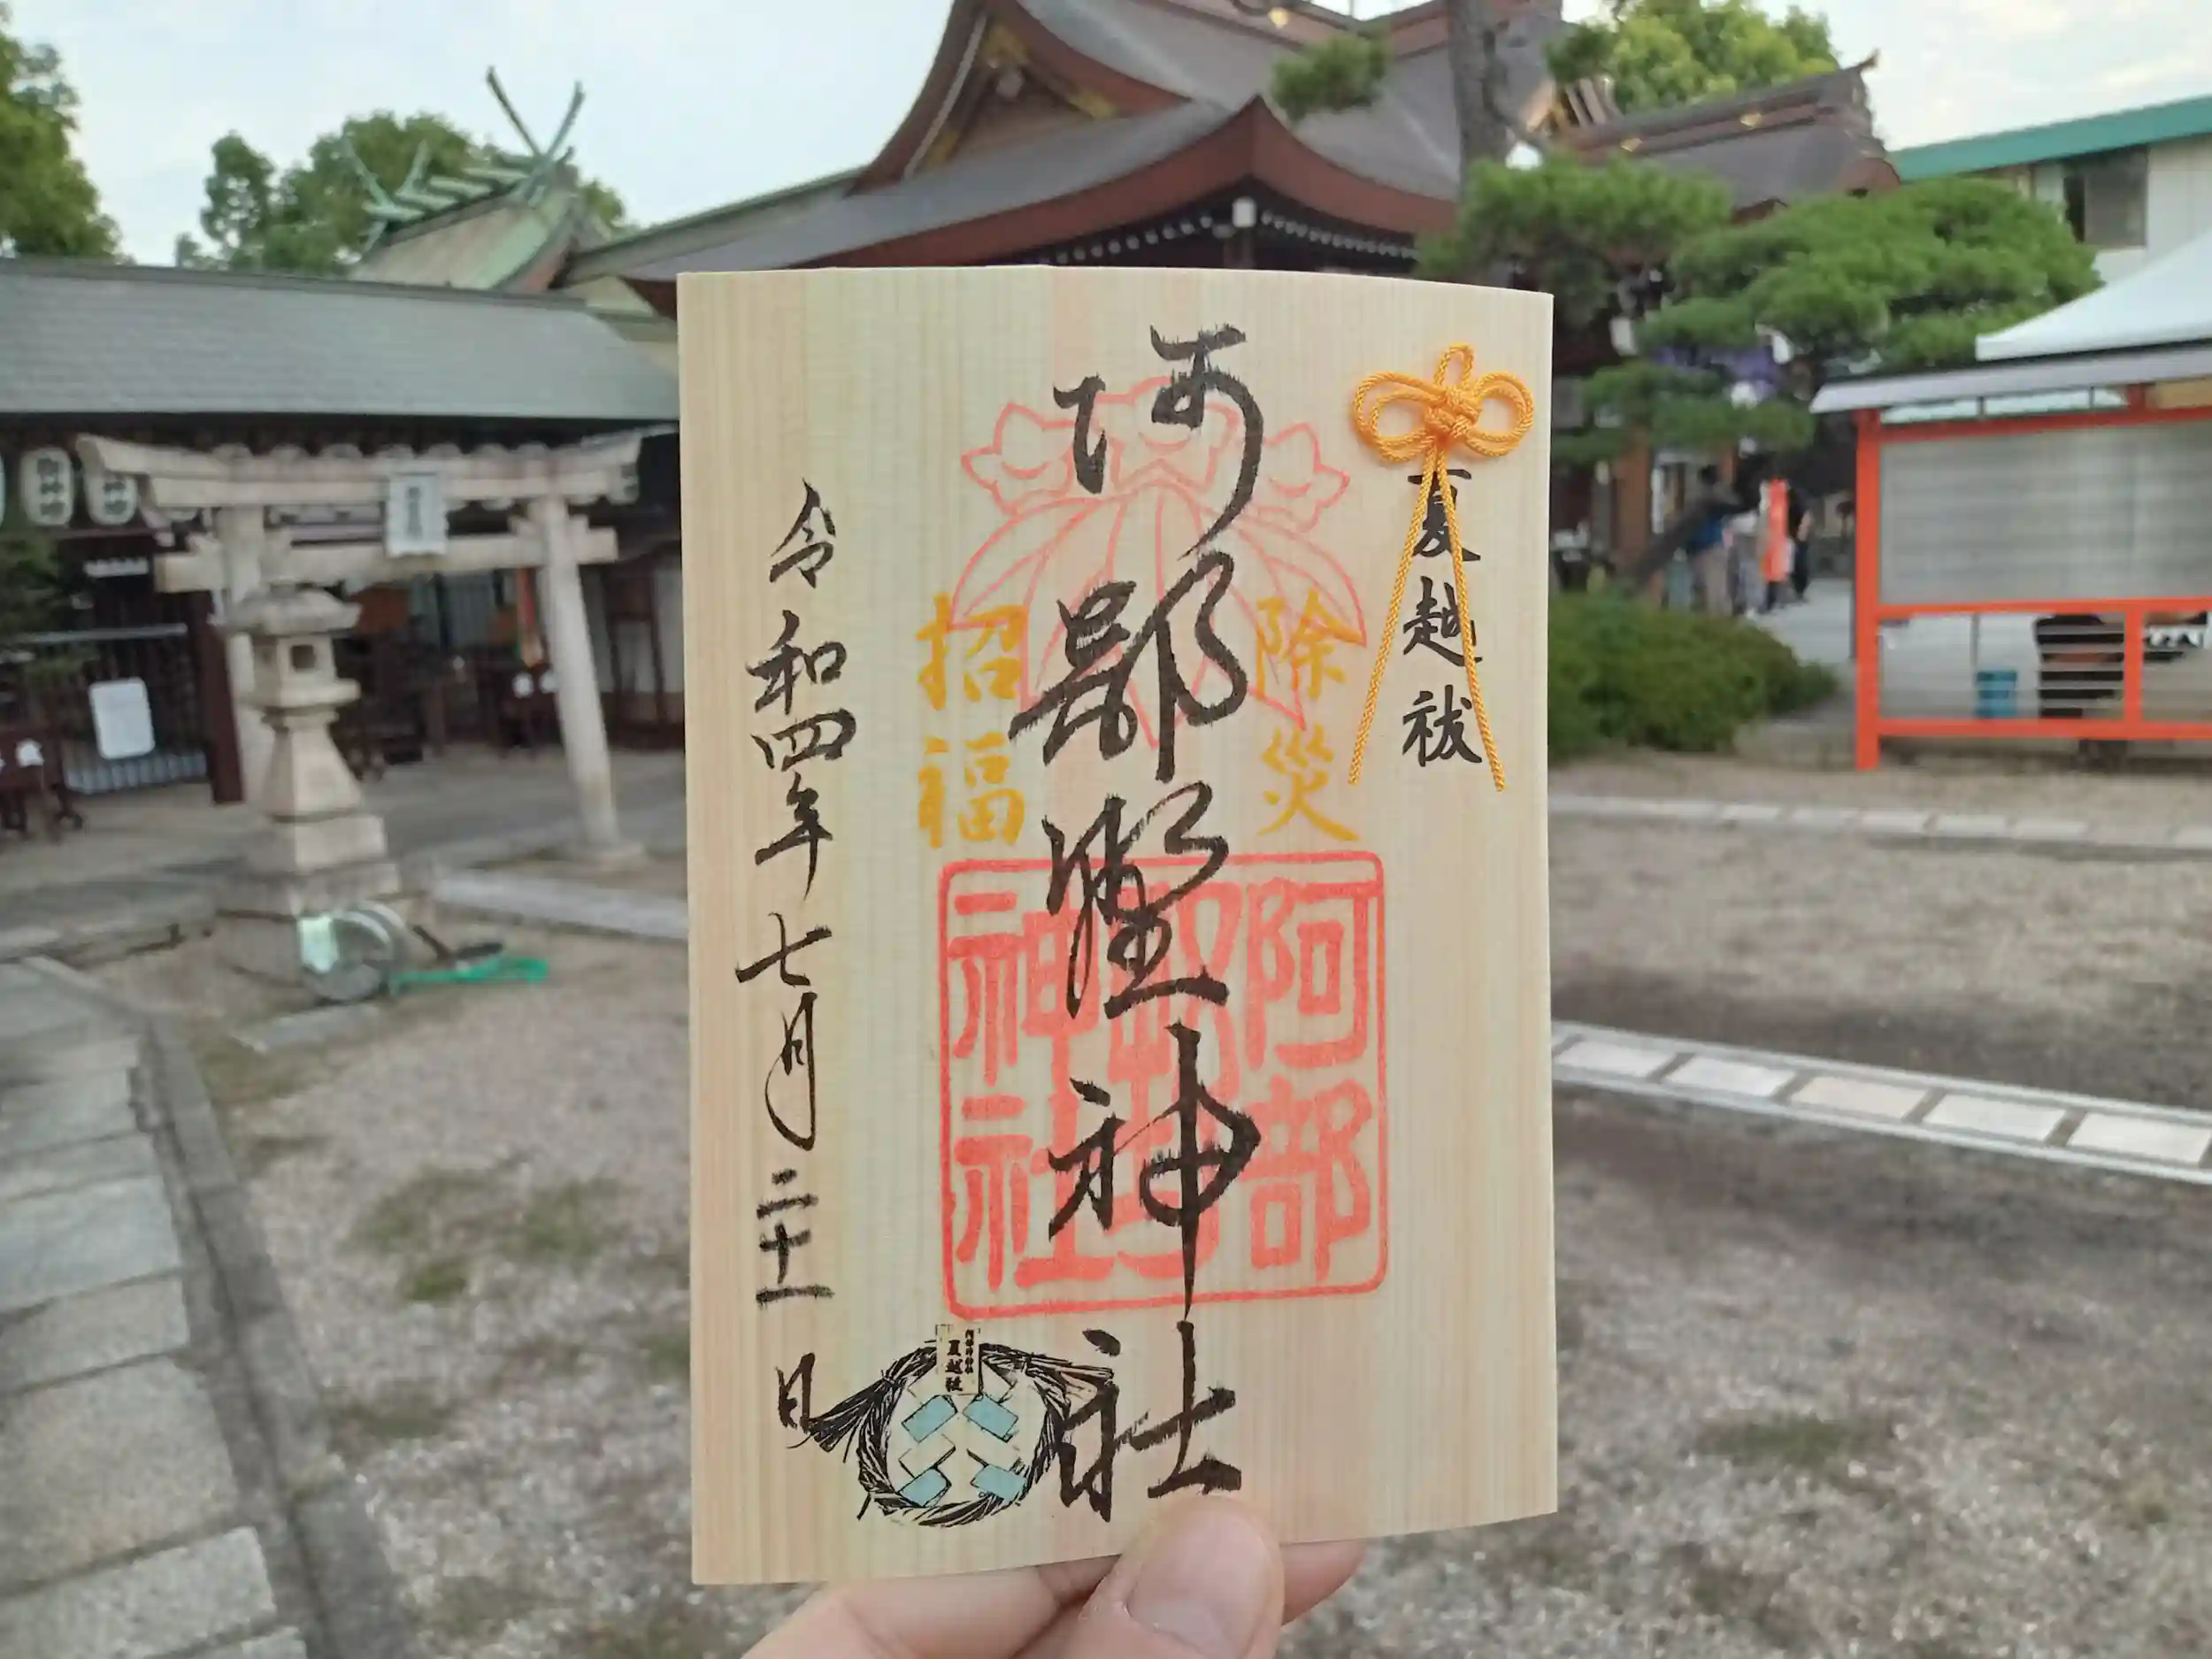 夏越祓
除災
阿部野神社
招福
阿部野神社
令和四年七月二十一日
夏越祓